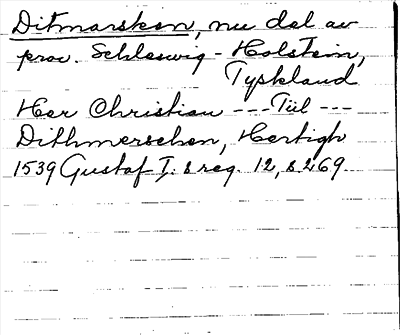 Ditmarsken, nu del av
prov. Schleswig - Holstein,
Tyskland
Her Christian --- Tiil ---
Dithmerschen, Hertigh
1539 Gustaf I:s reg. 12, s 269.